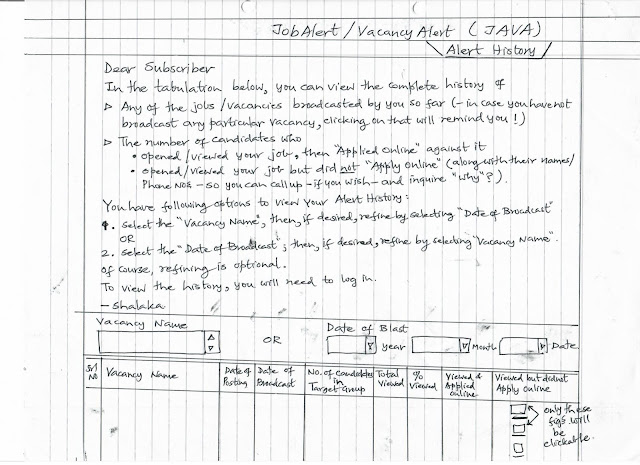 JobAlert / Vacancy Alert (JAVA)
Alert History
Dear Subscriber
In the tabulation below, you can view the complete history of
▷ Any of the jobs / vacancies broadcasted by you so far (- in case you have not
broadcast any particular vacancy, clicking on that will remind you!)
▷ The number of candidates who
• opened / viewed your job, then "Applied Online" against it
• opened / viewed your job but did not "Apply Online" (along with their names /
Phone Nos - so you can call up - if you wish - and inquire "Why"?).
You have following options to view Your Alert History:
1. select the "Vacancy Name", then, if desired, refine by selecting "Date of Broadcast"
OR
2. select the "Date of Broadcast", then, if desired, refine by selecting "Vacancy Name".
Of course, refining is optional.
To view the history, you will need to log in.
- Shalaka
Vacancy Name OR Date of Blast
year Month Date
Srl No Vacancy Name Date of Posting Date of Broadcast No. of Candidates in Target Group Total Viewed % Viewed Viewed & Applied Online Viewed but did not Apply Online
only these
figs will
be
clickable.